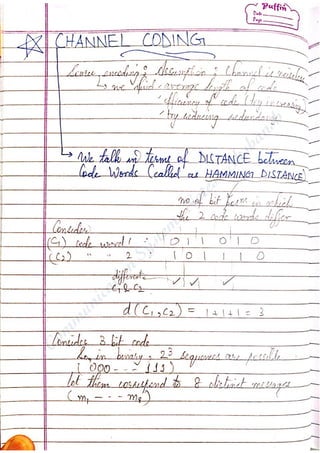 Puffin
Date
Page
CHANNEL CODING
Source encoding: Assumption: Channel is noiseless
↳ we find • average length of code
• efficiency of code (try increasing)
by reducing redundancy
→ We talk in terms of DISTANCE between
Code Words (called as HAMMING DISTANCE)
no. of bit posn in which
the 2 code words differ
Consider
(C1) code word 1 : 0 1 1 0 1 0
(C2) " " 2 1 0 1 1 1 0
different: ✓ ✓ ✓
C1 & C2
d(C1, C2) = 1+1+1 = 3
Consider 3 bit code
So, in binary, 2³ sequences are possible
(000 --- 111)
let them correspond to 8 distinct messages
(m1 --- m8)